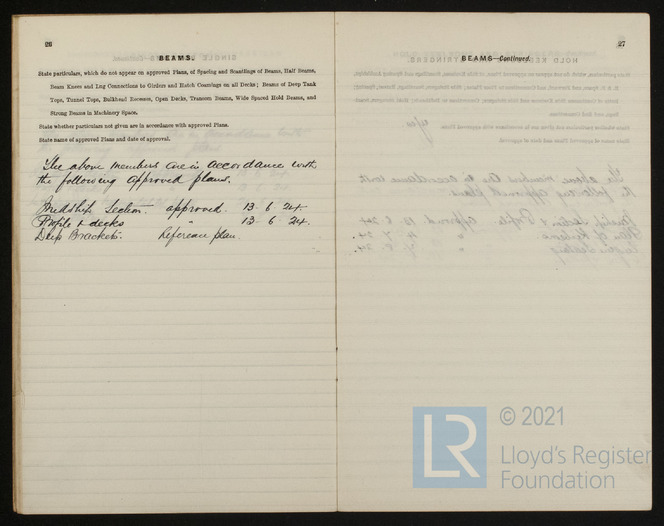 26
BEAMS.
State particulars, which do not appear on approved Plans, of Spacing and Scantlings of Beams, Half Beams,
Beam Knees and Lug Connections to Girders and Hatch Coamings on all Decks; Beams of Deep Tank
Tops, Tunnel Tops, Bulkhead Recesses, Open Decks, Transom Beams, Wide Spaced Hold Beams, and
Strong Beams in Machinery Space.
State whether particulars not given are in accordance with approved Plans.
State name of approved Plans and date of approval.
The above members are in accordance with
the following approved plans.
Midship Section. approved. 13-6-24.
Profile & decks " 13-6-24.
Deep Brackets. Reference plan.
27
BEAMS—Continued.
LR
© 2021
Lloyd's Register
Foundation